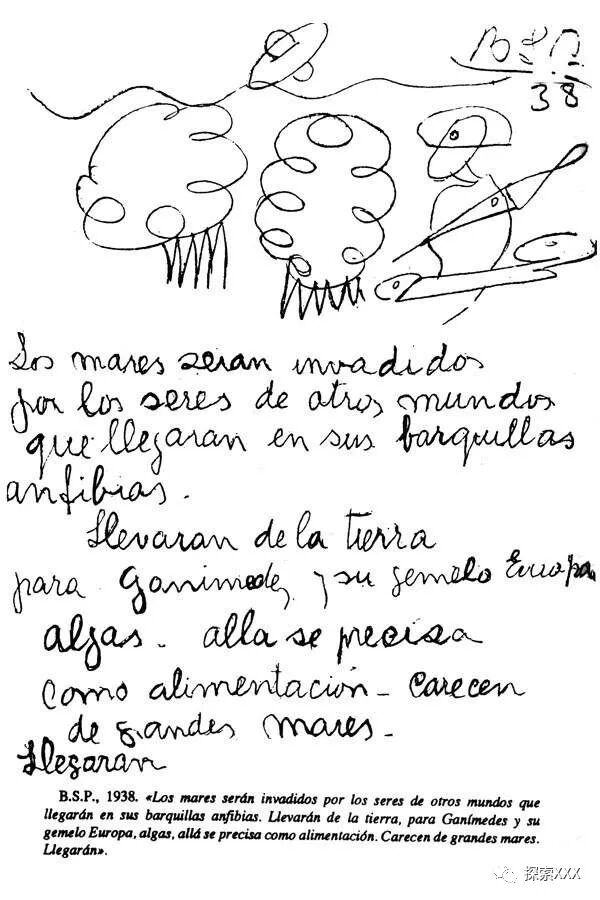 BSP
38
Los mares seran invadidos
por los seres de otros mundos
que llegaran en sus barquillas
anfibias.
Llevaran de la tierra
para Ganimedes y su gemelo Europa
algas - alla se precisa
como alimentación - Carecen
de grandes mares -
Llegaran
B.S.P., 1938. «Los mares serán invadidos por los seres de otros mundos que
llegarán en sus barquillas anfibias. Llevarán de la tierra, para Ganímedes y su
gemelo Europa, algas, allá se precisa como alimentación. Carecen de grandes mares.
Llegarán».
探索XXX